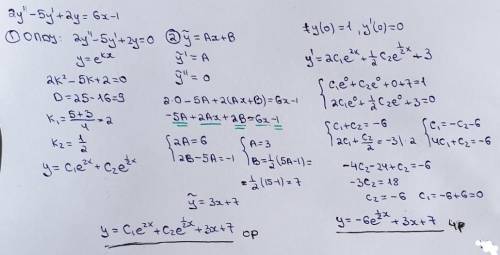 2y'' - 5y' + 2y = 6x - 1
① ОЛОДУ: 2y'' - 5y' + 2y = 0
y = e^{kx}
2k² - 5k + 2 = 0
D = 25 - 16 = 9
k₁ = \frac{5+3}{4} = 2
k₂ = \frac{1}{2}
y = C₁e^{2x} + C₂e^{\frac{1}{2}x}
② ỹ = Ax + B
ỹ' = A
ỹ'' = 0
2·0 - 5A + 2(Ax + B) = 6x - 1
-5A + 2Ax + 2B = 6x - 1
{ 2A = 6
2B - 5A = -1
{ A = 3
B = \frac{1}{2}(5A - 1) =
= \frac{1}{2}(15 - 1) = 7
ỹ = 3x + 7
y = C₁e^{2x} + C₂e^{\frac{1}{2}x} + 3x + 7 ОР
y(0) = 1, y'(0) = 0
y' = 2C₁e^{2x} + \frac{1}{2}C₂e^{\frac{1}{2}x} + 3
{ C₁e⁰ + C₂e⁰ + 0 + 7 = 1
2C₁e⁰ + \frac{1}{2}C₂e⁰ + 3 = 0
{ C₁ + C₂ = -6
2C₁ + \frac{C₂}{2} = -3 |·2
{ C₁ = -C₂ - 6
4C₁ + C₂ = -6
-4C₂ - 24 + C₂ = -6
-3C₂ = 18
C₂ = -6 C₁ = -6 + 6 = 0
y = -6e^{\frac{1}{2}x} + 3x + 7 ЧР